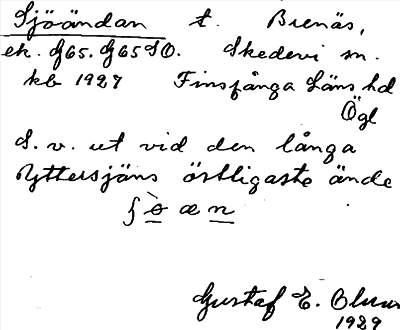 Sjöändan t. Brenäs,
ek. G65. G65SO. Skedevi sn.
kb 1927 Finspånga Läns hd
Ögl
S. v. ut vid den långa
Yttersjöns östligaste ände
Gustaf E.
1929